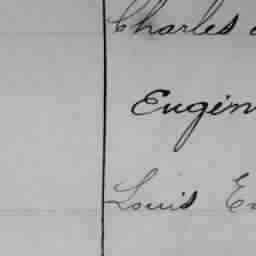 Charles
Eugen
Louis E